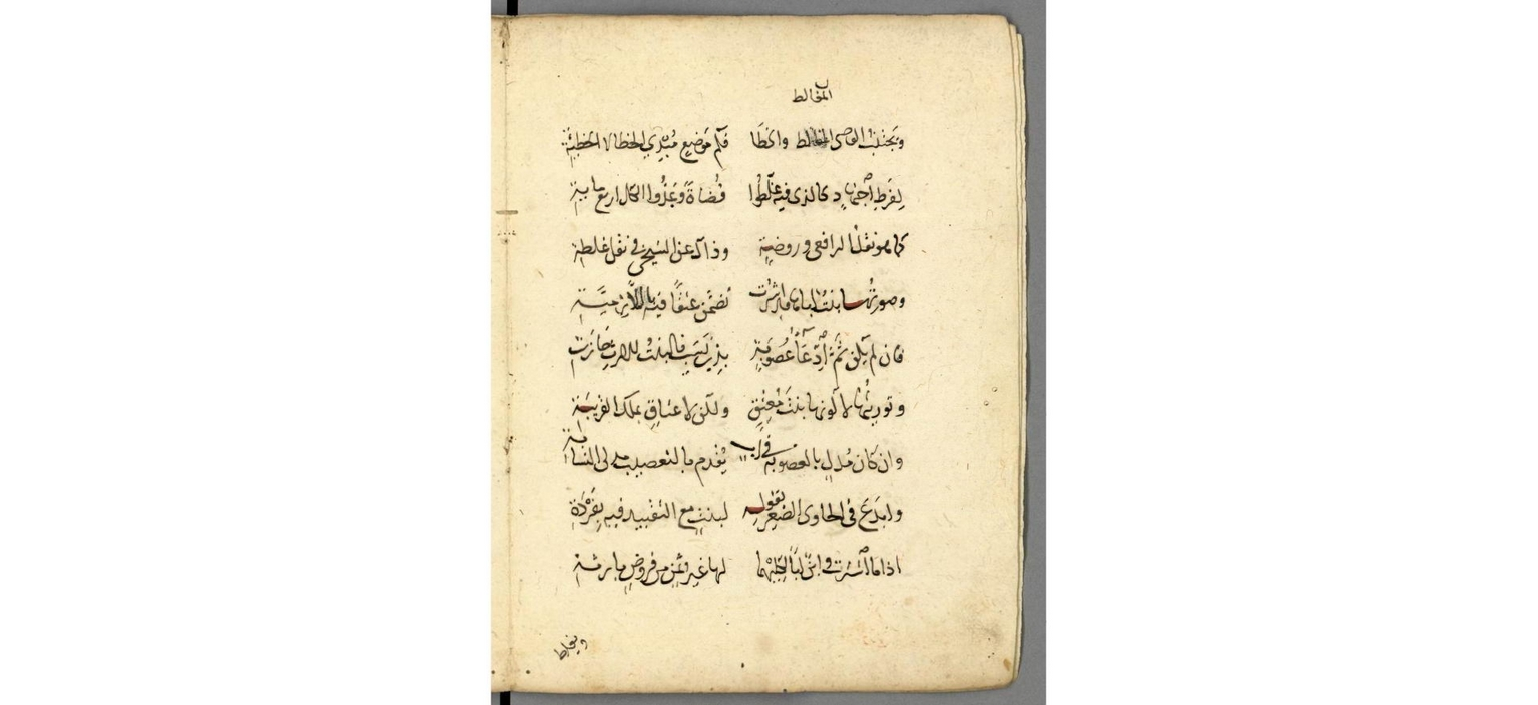 المغالط
ويجتنب القاضى المغالط والخطا فكم موضع مبدي الخطا لا الخطية
لفرط اجتهاد كالذى فيه غلطوا قضاة وعدوا الكل اربع ماية
كما هو نقل الرافعى وروضة وذاك عن الشيخى فى نقل غلطة
وصورتها بنت اباها قد اشترت تضمن عتقا فيه
فان لم يكن ثم ادعا عصوبة بذي نسب فالبنت للارث حازت
وتوريثها لا كونها بنت معتق ولكن لاعتاق بملك القريبة
وان كان مدل بالعصوبة فى اب يقدم بالتعصيب
وابدع فى الحاوى الصغير بقوله لبنت مع التقييد فيه بفردة
اذا ما اشترت لها غير من فروض